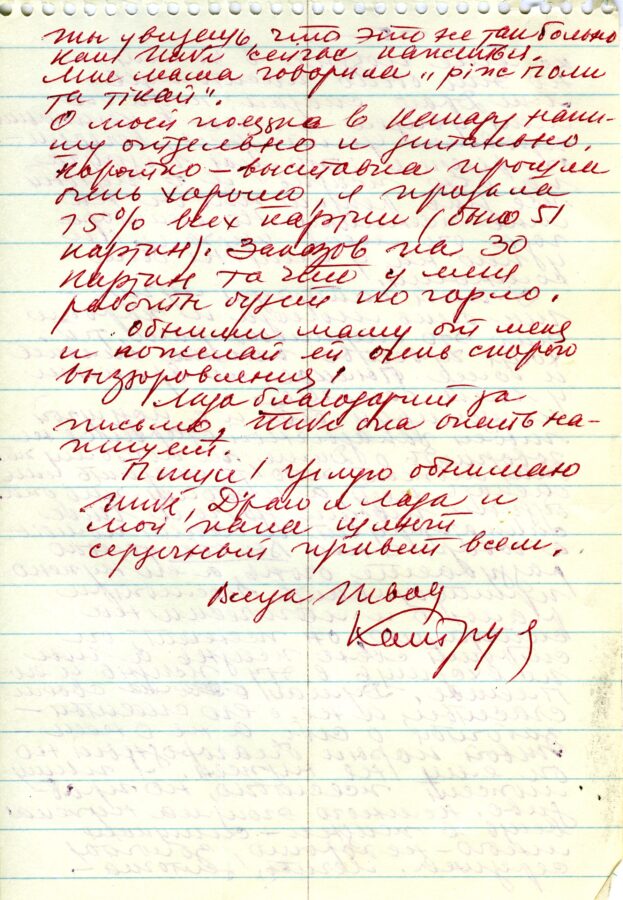 ты увидешь, что это не так больно
как тебе сейчас кажеться.
Мне мама говорила „ріж поли
та тікай".
О моей поездке в Канаду напи-
шу отдельно и детально.
Коротко – выставка прошла
очень хорошо, я продала
75% всех картин (было 51
картин). Заказов на 30
картин так что у меня
работы будет по горло.
Обними маму от меня
и пожелай ей очень скорого
выздоровления!
Лада благодарит за
письмо, тебе она опять на-
пишет.
Пиши! Целую обнимаю
тебе, Драго и Лада и
мой папа целуют
сердечный привет всем.
Всегда твоя